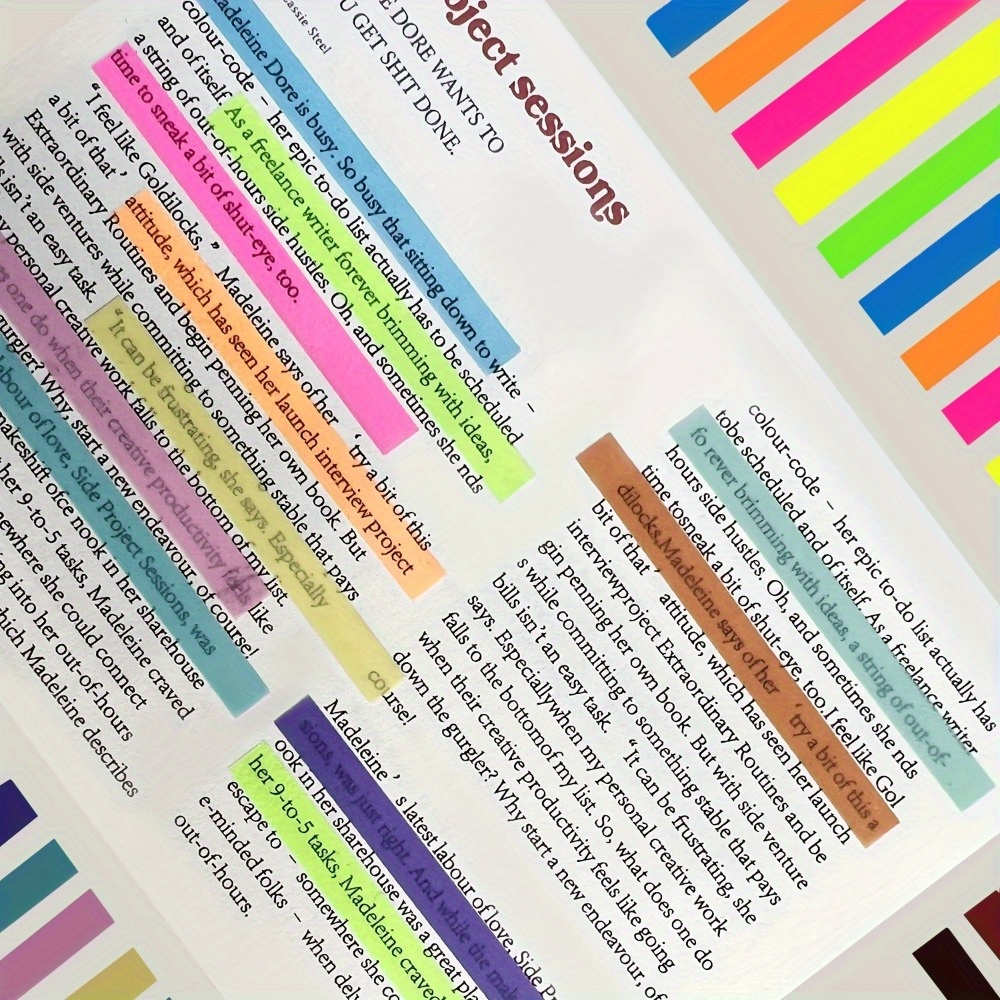 oject sessions
E DORE WANTS TO
U GET SHIT DONE.
Cassie Steel
adeleine Dore is busy. So busy that sitting down to write –
colour-code – her epic to-do list actually has to be scheduled
and of itself. As a freelance writer forever brimming with ideas,
a string of out-of-hours side hustles. Oh, and sometimes she nds
time to sneak a bit of shut-eye, too.
“I feel like Goldilocks, ” Madeleine says of her ‘try a bit of this
a bit of that’ attitude, which has seen her launch interview project
Extraordinary Routines and begin penning her own book. But
with side ventures while committing to something stable that pays
s isn't an easy task. “It can be frustrating, she says. Especially
y personal creative work falls to the bottom of my list
s one do when their creative productivity feels like
urgler? Why, start a new endeavour, of course!
bour of love, Side Project Sessions, was
makeshift office nook in her sharehouse
her 9-to-5 tasks, Madeleine craved
ewhere she could connect
ng into her out-of-hours
hich Madeleine describes
colour-code – her epic to-do list actually has
tobe scheduled and of itself. As a freelance writer
fo rever brimming with ideas, a string of out-of-
hours side hustles. Oh, and sometimes she nds
time tosneak a bit of shut-eye, too.I feel like Gol
dilocks,Madeleine says of her ‘try a bit of this a
bit of that’ attitude, which has seen her launch
interviewproject Extraordinary Routines and be
gin penning her own book. But with side venture
s while committing to something stable that pays
bills isn't an easy task. “It can be frustrating, she
says. Especiallywhen my personal creative work
falls to the bottomof my list. So, what does one do
when their creative productivity feels like going
down the gurgler? Why start a new endeavour, of
course!
Madeleine ’ s latest labour of love, Side P
sions, was just right. And while the mak
ook in her sharehouse was a great pla
her 9-to-5 tasks, Madeleine craved
escape to – somewhere she co
e-minded folks – when delv
out-of-hours.